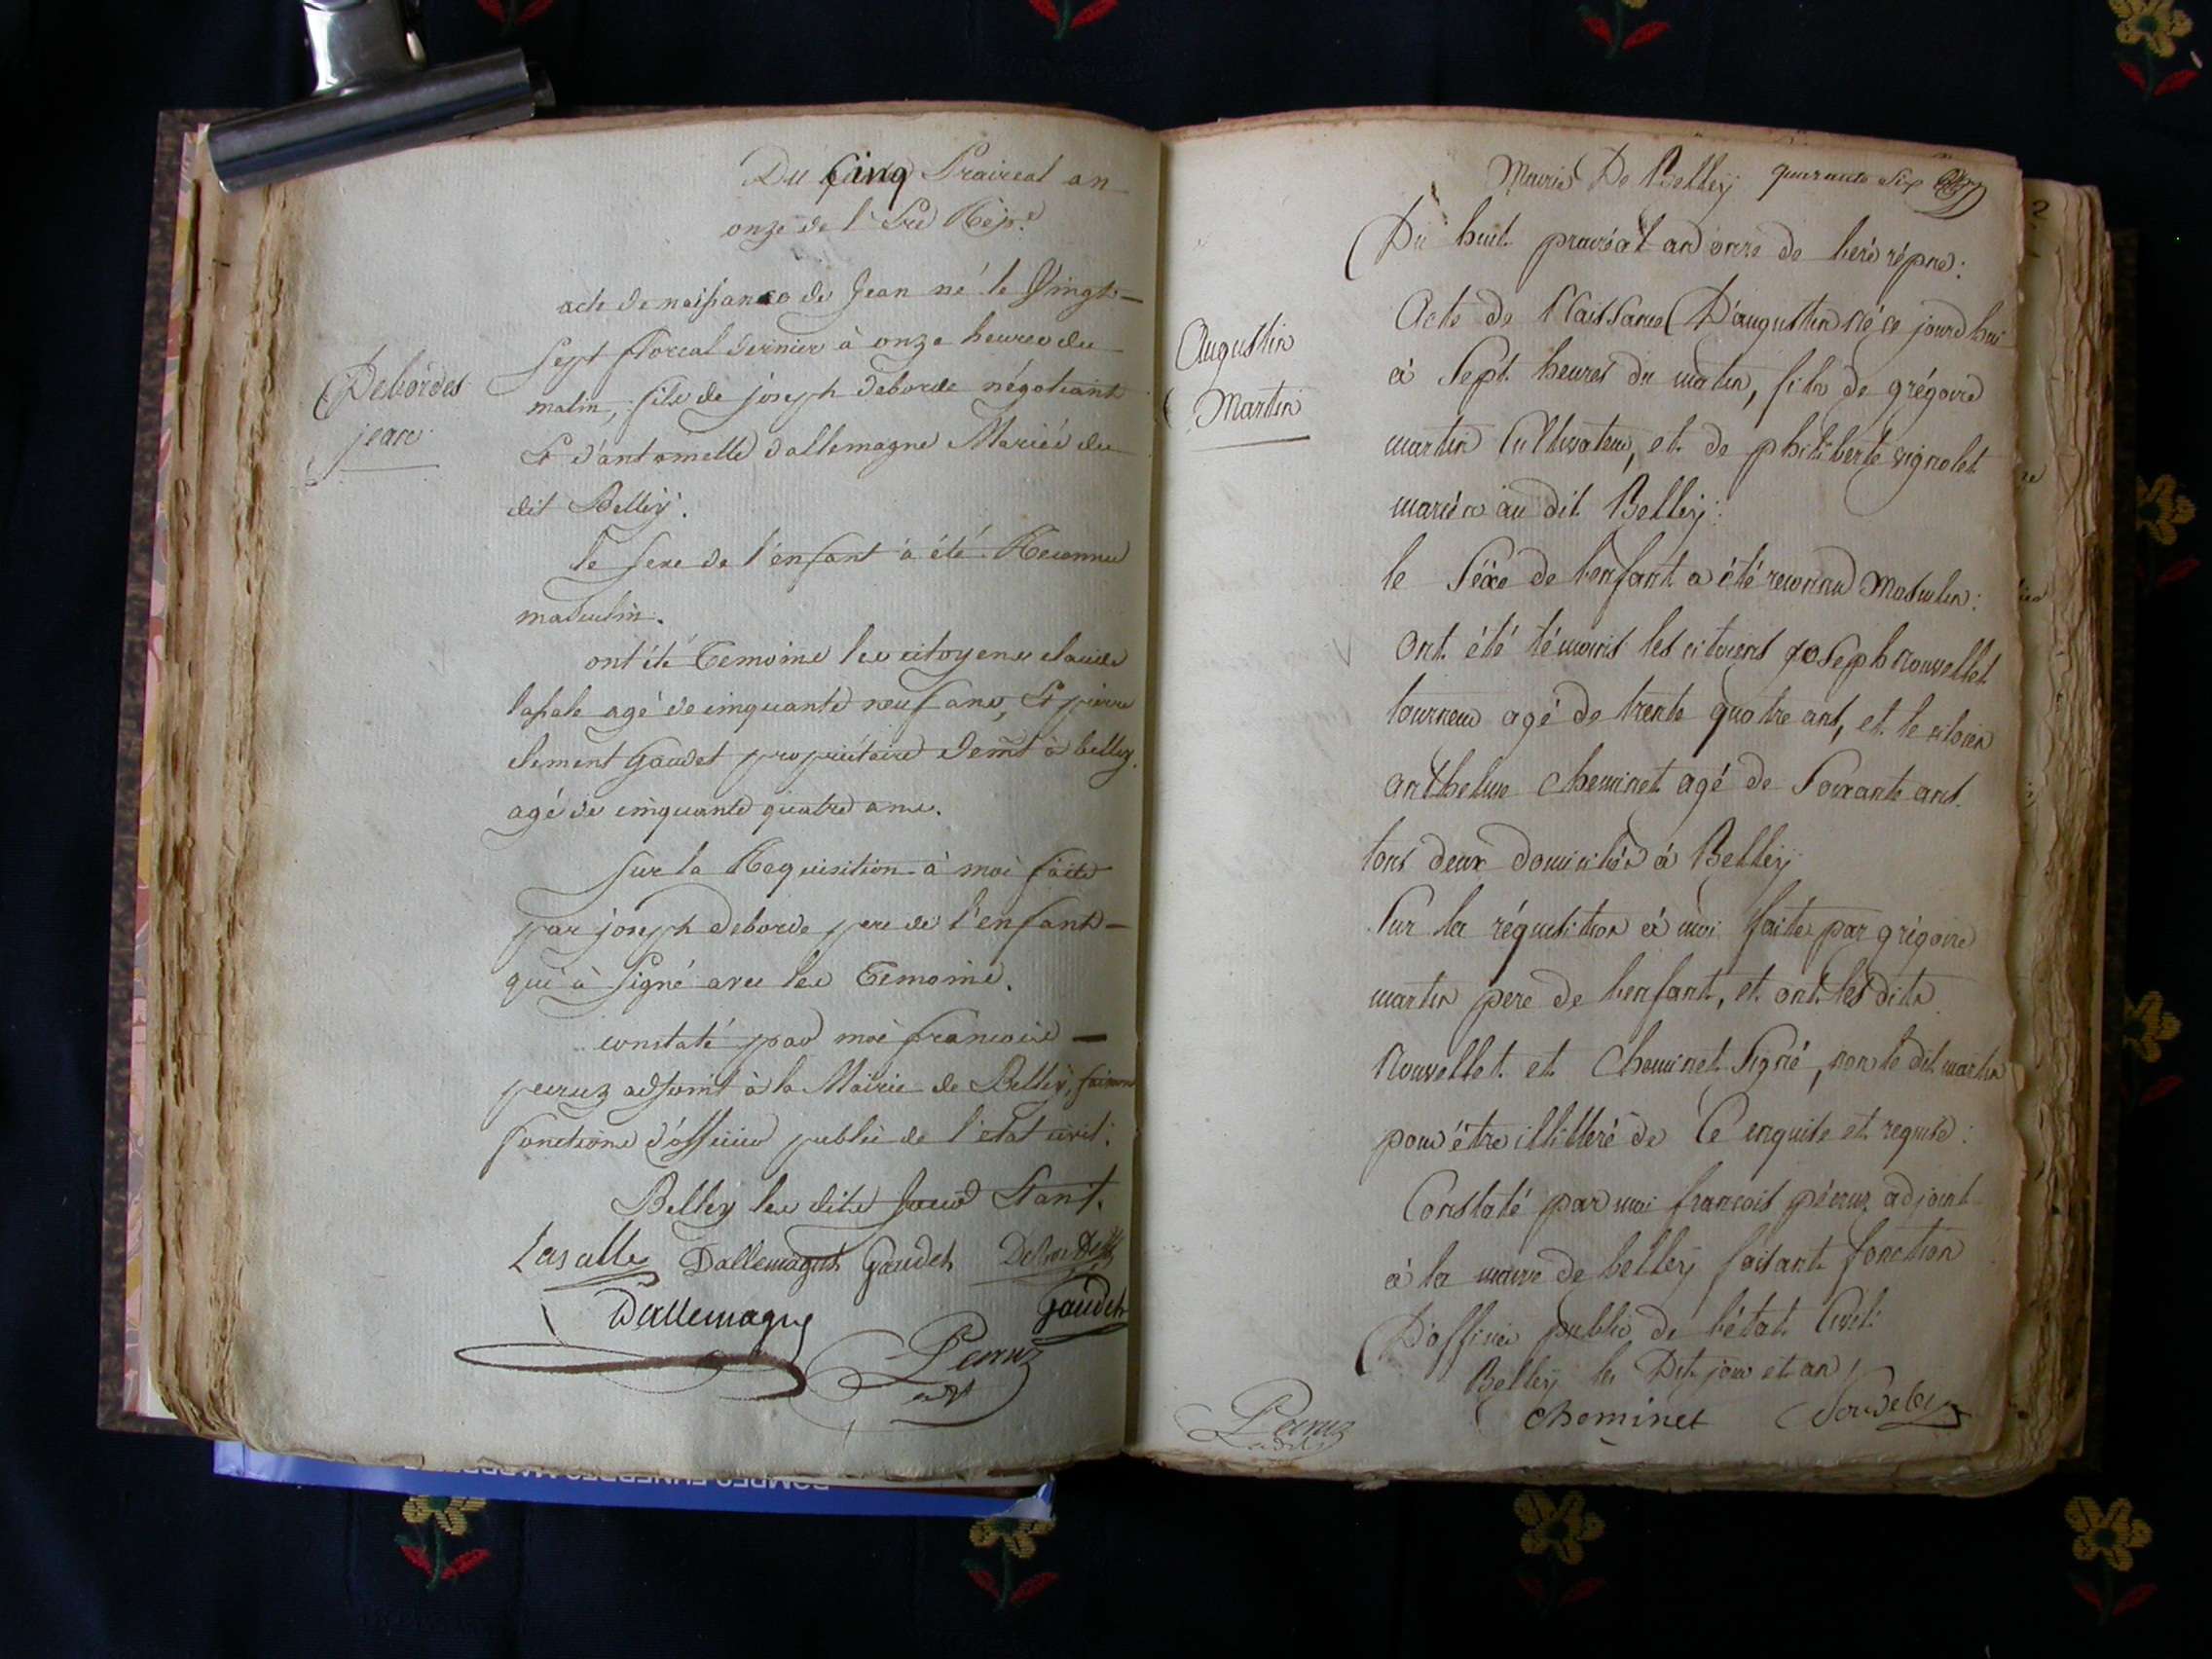 Du Cinq Prairéal an
onze de l'Ere Rép.e
acte de naissance de Jean né le Vingt-
Sept floréal dernier à onze heures du
matin, fils de joseph deborde négotiant
Et d'antoinette dallemagne Mariés du
dit Belley.
Debordes
jean
le sexe de l'enfant à été Reconnu
masculin.
ont été Temoins les citoyens claude
lasale agé de cinquante neuf ans, Et pierre
clement Gaudet propriétaire demt à belley.
agé de cinquante quatre ans.
Sur la Requisition à moi faite
par joseph deborde pere de l'enfant-
qui à Signé avec les Temoins.
constaté par moi francois -
peruz adjoint à la Mairie de Belley, faisant
fonctions d'officier public de l'etat civil.
Belley les dits Jour Et an.
Lasalle Dallemagne Gaudet Debordes
Dallemagne Gaudet
Peruz
adt
Mairie De Belleÿ quarante six
Du huit prairéal an onze de l'ere répne:
Augustin
Martin
Acte de Naissance D'augustin né ce jourd'hui
à Sept heures du matin, fils de grégoire
martin Cultivateur, et de philiberte vignolet
mariés au dit Belleÿ:
le Séxe de l'enfant a été reconnu Masculin:
ont été témoins les citoiens joseph nouvellet
tourneur agé de trente quatre ans, et le citoien
anthelme cheminet agé de Soixante ans.
tous deux domiciliés à Belleÿ
Sur la réquisition à moi faite par grégoire
martin pere de l'enfant, et ont lesdits
Nouvellet et Cheminet Signé, non le dit martin
pour être illitteré de Ce enquis et requis:
Constaté par moi francois péruz adjoint
à la mairie de belleÿ faisant fonction
D'officier public de l'état Civil:
Belleÿ les Dit jour et an
cheminet
Peruz
adt